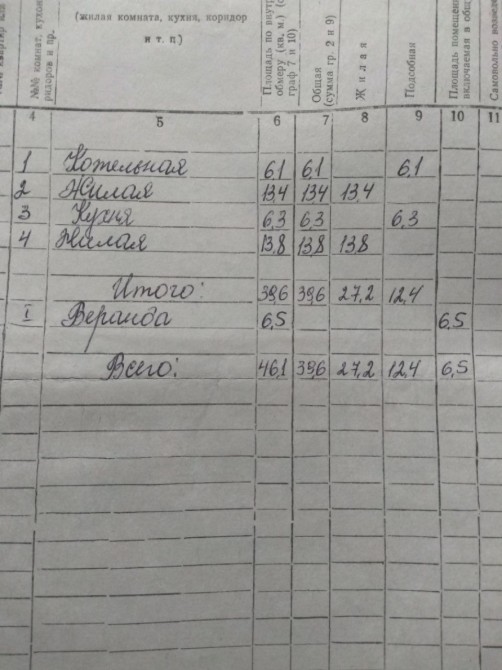 (жилая комната, кухня, коридор и т. п.)
№№ комнат, кухон
ридоров и пр.
Площадь по внутр
обмеру (кв. м.) (с
граф 7 и 10)
Общая
(сумма гр. 2 и 9)
Жилая
Подсобная
Площадь помещени
включаемая в общу
Самовольно возвед
4 5 6 7 8 9 10 11
1 Котельная 6,1 6,1 6,1
2 Жилая 13,4 13,4 13,4
3 Кухня 6,3 6,3 6,3
4 Жилая 13,8 13,8 13,8
Итого: 39,6 39,6 27,2 12,4
I Веранда 6,5 6,5
Всего: 46,1 39,6 27,2 12,4 6,5